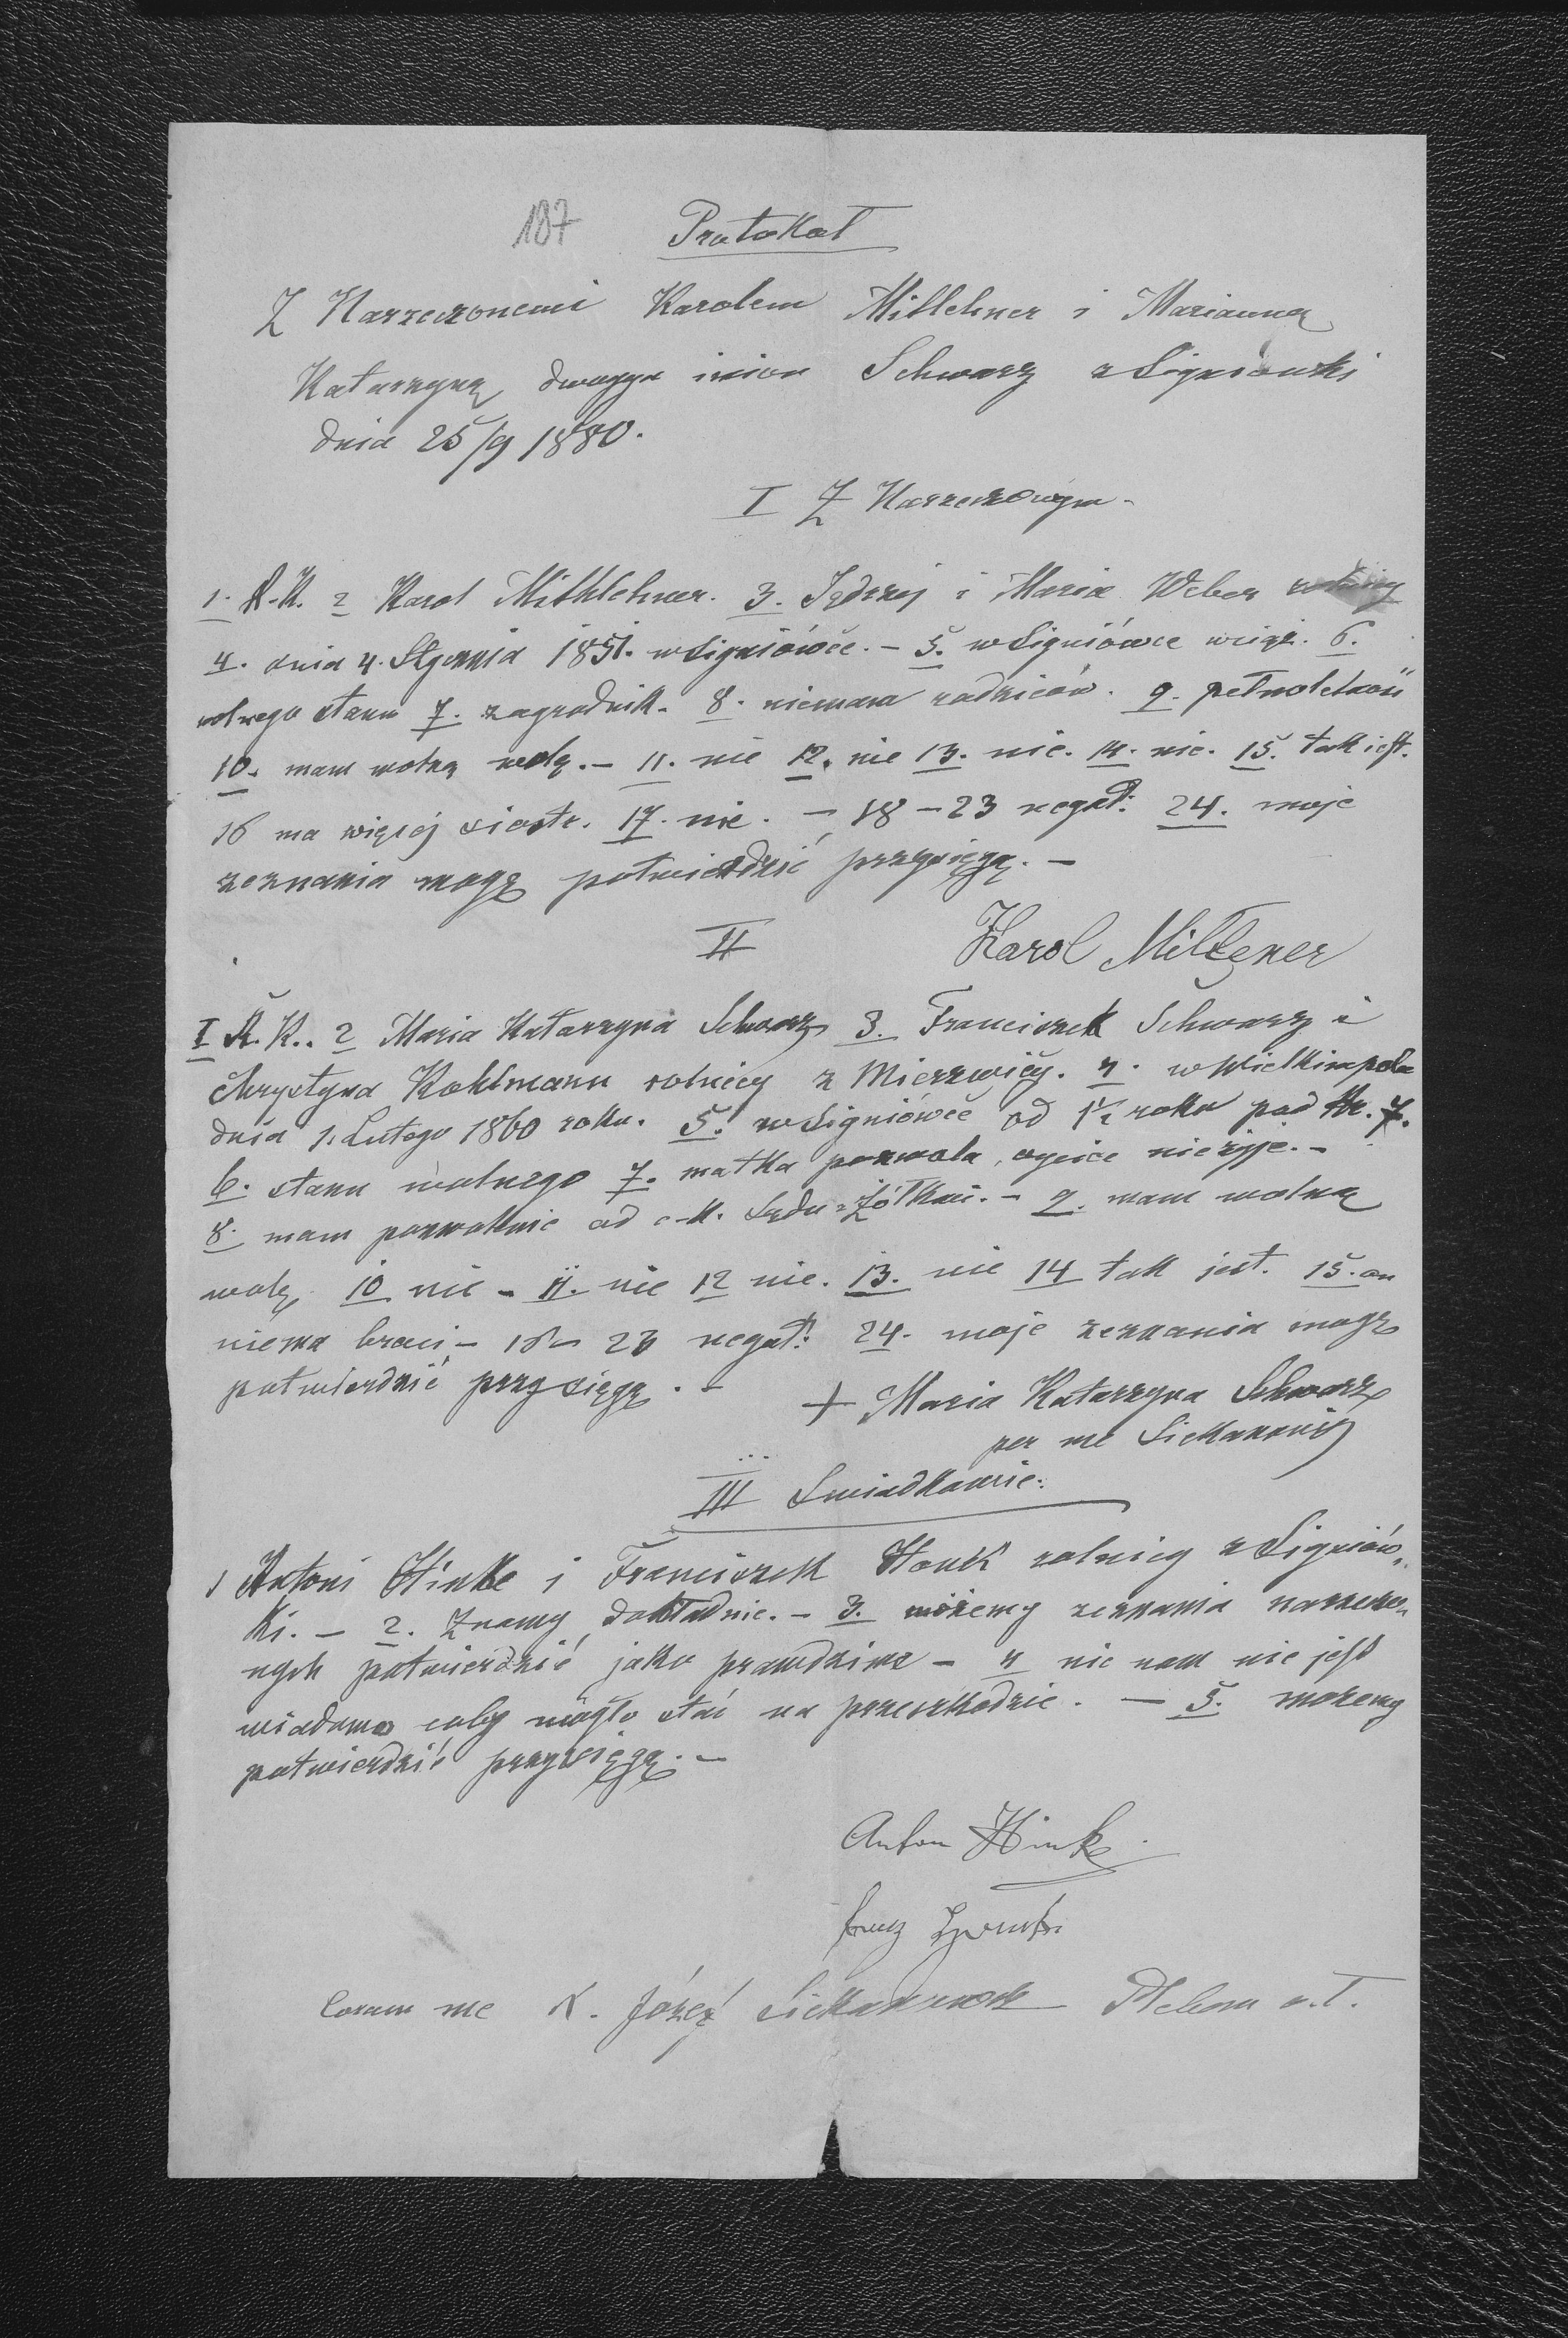 187 Protokoł
Z Narzeczonemi Karolem Mithlehner i Marianną
Katarzyną dwojga imion Schwarz z Signiówki
dnia 25/9 1880.
I Z Narzeczonym -
1. R.K. 2 Karol Mithlehner. 3. Jędrzej i Maria Weber rolnicy
4. dnia 4. Stycznia 1851. w Signiówce. - 5. w Signiówce wciąż. 6.
wolnego stanu 7. zagrodnik. 8. niemam rodziców. 9. pełnoletność
10. mam wolną wolę. - 11. nie 12. nie 13. nie. 14. nie. 15. tak jest.
16 ma więcej siostr. 17. nie. - 18 - 23 negat: 24. moje
zeznania mogę potwierdzić przysięgą. -
II Karol Miltzner
I R.K.. 2 Maria Katarzyna Schwarz 3. Franciszek Schwarz i
Chrystyna Kohlmann rolnicy z Mierzwicy. 4. w Wielkimpolu
dnia 1. Lutego 1860 roku. 5. w Signiówce od 1½ roku pod Nr. 7.
6. stanu wolnego 7. matka pozwala, ojciec nieżyje. -
8. mam pozwolenie od c-k. Sądu z Żółkwi. - 9. mam wolną
wolę 10 nie - 11. nie 12 nie. 13. nie 14 tak jest. 15. on
niema braci - 16 - 23 negat: 24. moje zeznania mogę
potwierdzić przysięgą. -
+ Maria Katarzyna Schwarz
per me
III Swiadkowie:
1 Antoni Hinke i Franciszek Honk rolnicy z Signiów,
ki. - 2. Znamy dokładnie. - 3. możemy zeznania narzeczo,
nych potwierdzić jako prawdziwe - 4 nic nam nie jest
wiadomo coby mogło stać na przeszkodzie. - 5. możemy
potwierdzić przysięgą. -
Anton Hinke
Franz
Coram me X. Józef Pleban o.T.